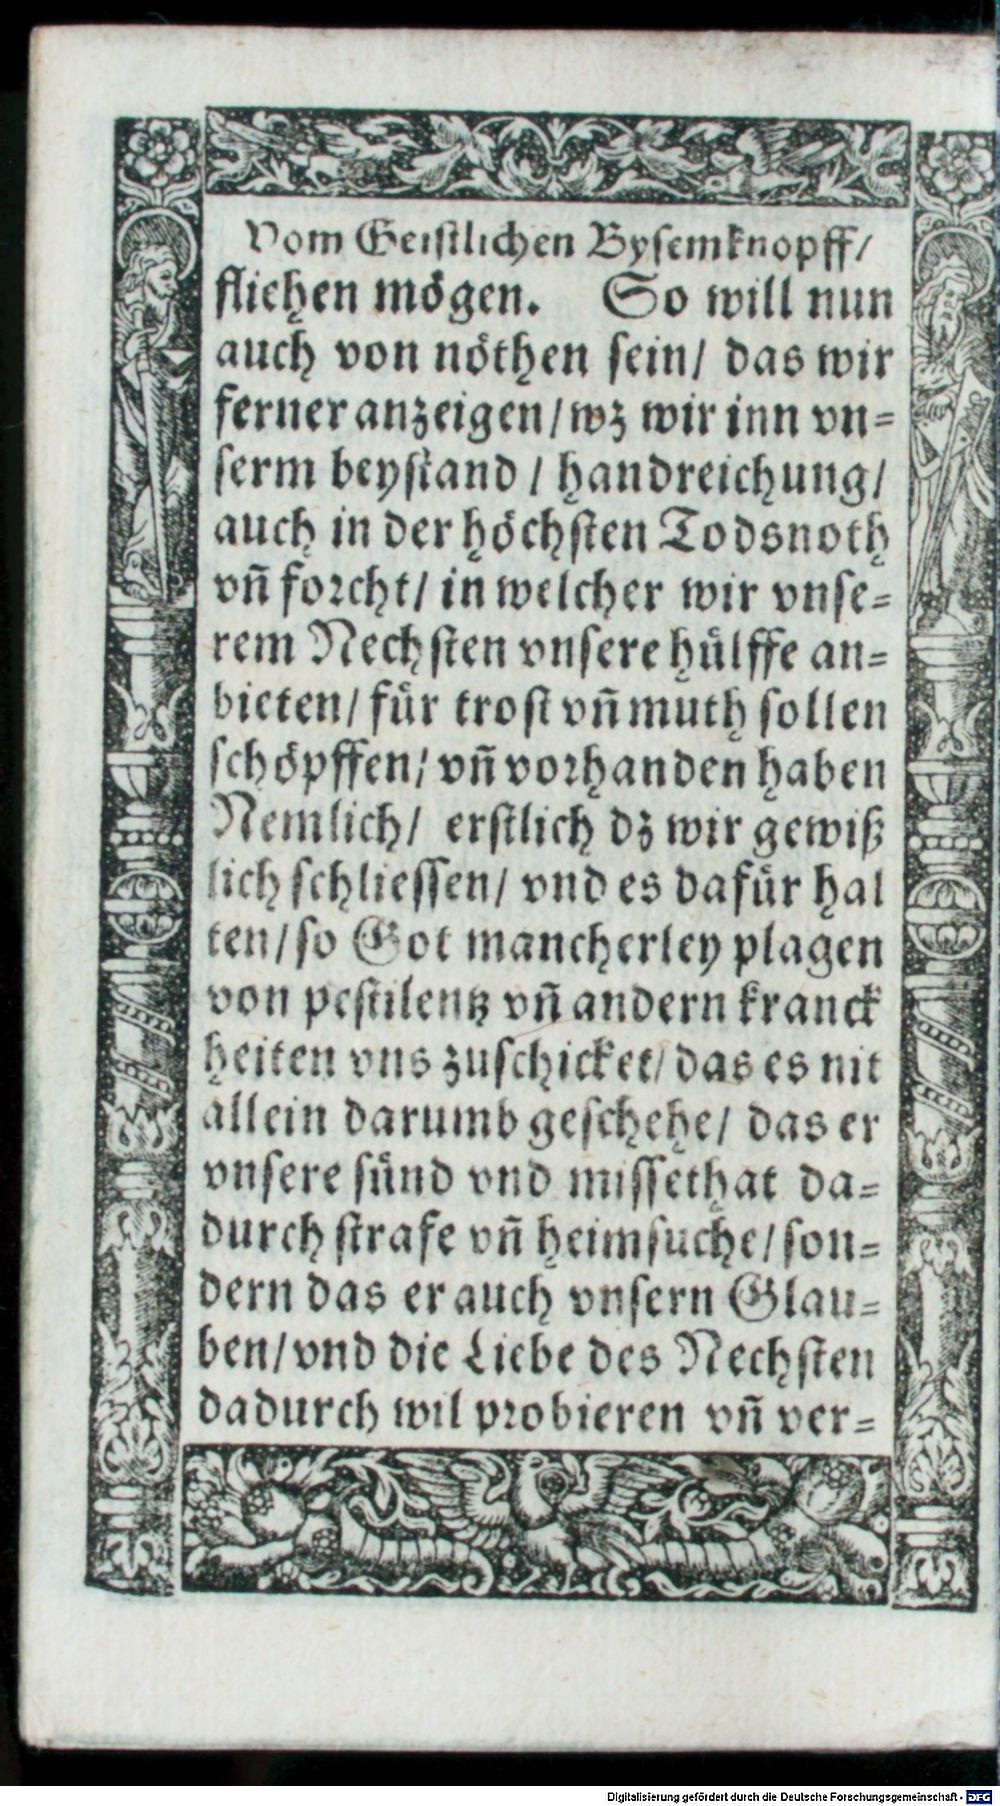 Vom Geistlichen Bysemknopff/
fliehen mögen. So will nun
auch von nöthen sein/ das wir
ferner anzeigen/wz wir inn vn=
serm beystand / handreichung/
auch in der höchsten Todsnoth
vñ forcht/ in welcher wir vnse=
rem Nechsten vnsere hülffe an=
bieten/ für trost vñ muth sollen
schöpffen/ vñ vorhanden haben
Nemlich/ erstlich dz wir gewiß
lich schliessen/ vnd es dafür hal
ten/so Got mancherley plagen
von pestilentz vñ andern kranck
heiten vns zuschicket/ das es nit
allein darumb geschehe/ das er
vnsere sünd vnd missethat da=
durch strafe vñ heimsuche/son=
dern das er auch vnsern Glau=
ben/vnd die Liebe des Nechsten
dadurch wil probieren vñ ver=
Digitalisierung gefördert durch die Deutsche Forschungsgemeinschaft - DFG